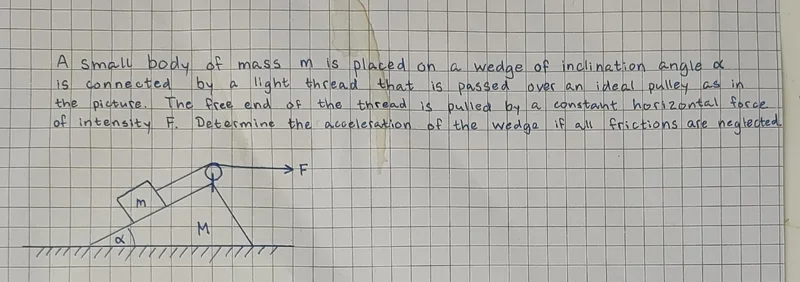 A small body of mass m is placed on a wedge of inclination angle α
is connected by a light thread that is passed over an ideal pulley as in
the picture. The free end of the thread is pulled by a constant horizontal force
of intensity F. Determine the acceleration of the wedge if all frictions are neglected
F
m
M
α